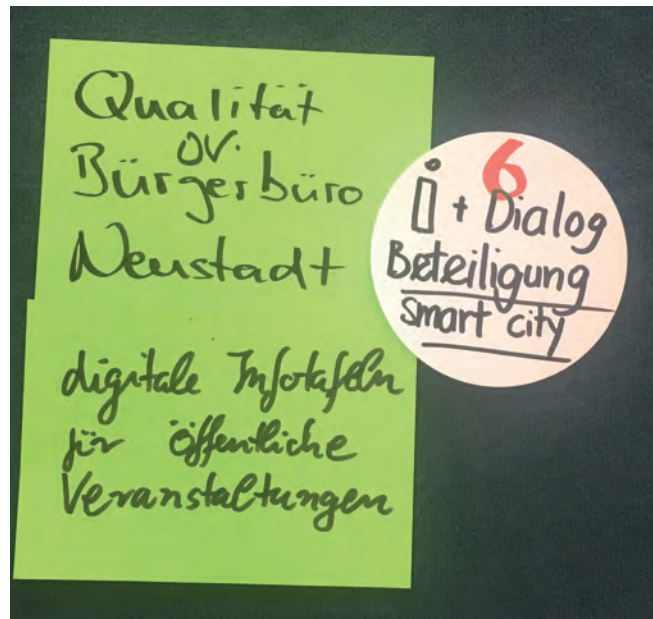 Qualität
OV.
Bürgerbüro
Neustadt
digitale Infotafeln
für öffentliche
Veranstaltungen
6
i + Dialog
Beteiligung
smart city